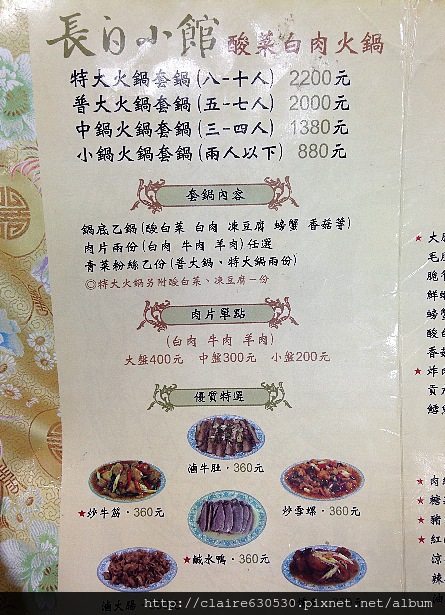 長白小館 酸菜白肉火鍋
特大火鍋套鍋(八-十人) 2200元
普大火鍋套鍋(五-七人) 2000元
中鍋火鍋套鍋(三-四人) 1380元
小鍋火鍋套鍋(兩人以下) 880元
套鍋內容
鍋底乙鍋(酸白菜 白肉 凍豆腐 螃蟹 香菇等)
肉片兩份(白肉 牛肉 羊肉)任選
青菜粉絲乙份(普大鍋、特大鍋兩份)
◎特大火鍋另附酸白菜、凍豆腐一份
肉片單點
(白肉 牛肉 羊肉)
大盤400元 中盤300元 小盤200元
優質特選
滷牛肚·360元
★炒牛筋·360元
炒雪螺·360元
★鹹水鴨·360元
滷大腸
★大
毛
脆
鮮
螃
酸
香
★炸
貢
鱈
★肉
★糖
★豬
★紅
涼
辣
http://claire630530.pixnet.net/album